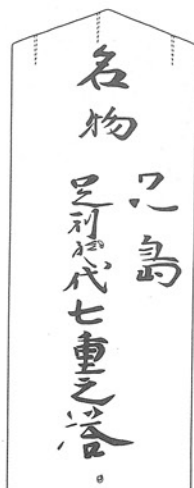 名物
島
足利時代七重之塔。